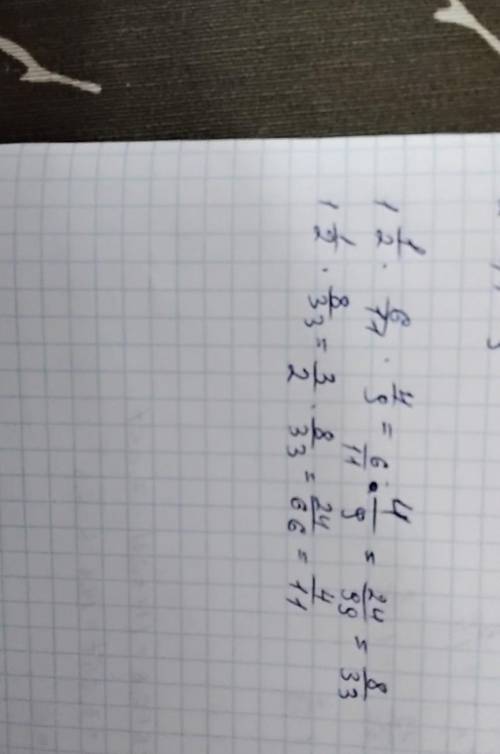 1 1/2 · 6/11 · 4/9 = 6/11 · 4/9 = 24/99 = 8/33
1 1/2 · 8/33 = 3/2 · 8/33 = 24/66 = 4/11